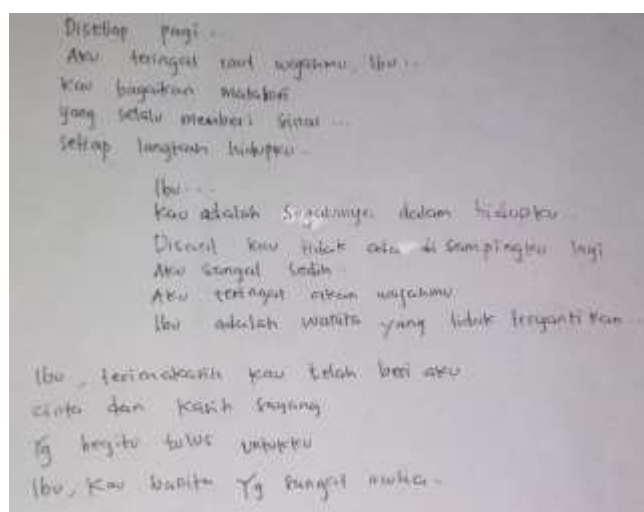 Disetiap pagi...
Aku teringat raut wajahmu, Ibu...
Kau bagaikan matahari
yang selalu memberi sinar...
Setiap langkah hidupku...
Ibu...
Kau adalah segalanya dalam hidupku...
Disaat kau tidak ada di sampingku lagi
Aku sangat sedih
Aku teringat akan wajahmu
Ibu adalah wanita yang tidak tergantikan...
Ibu, terimakasih kau telah beri aku
cinta dan kasih sayang
Yg begitu tulus untukku
Ibu, Kau wanita Yg sangat mulia.